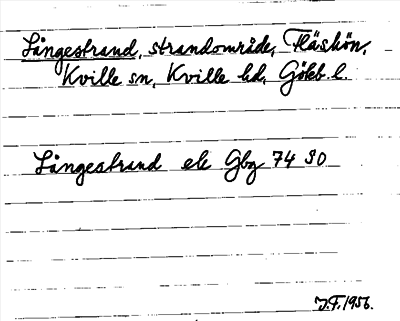 Långestrand, strandområde, Fläskön,
Kville sn, Kville hd, Göteb. l.
Långestrand ek Gbg 74 SO
J.F. 1956.